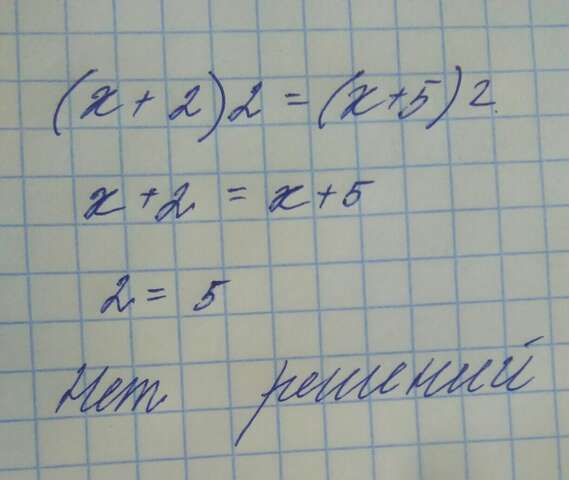 (x + 2) 2 = (x + 5) 2
x + 2 = x + 5
2 = 5
Нет решений